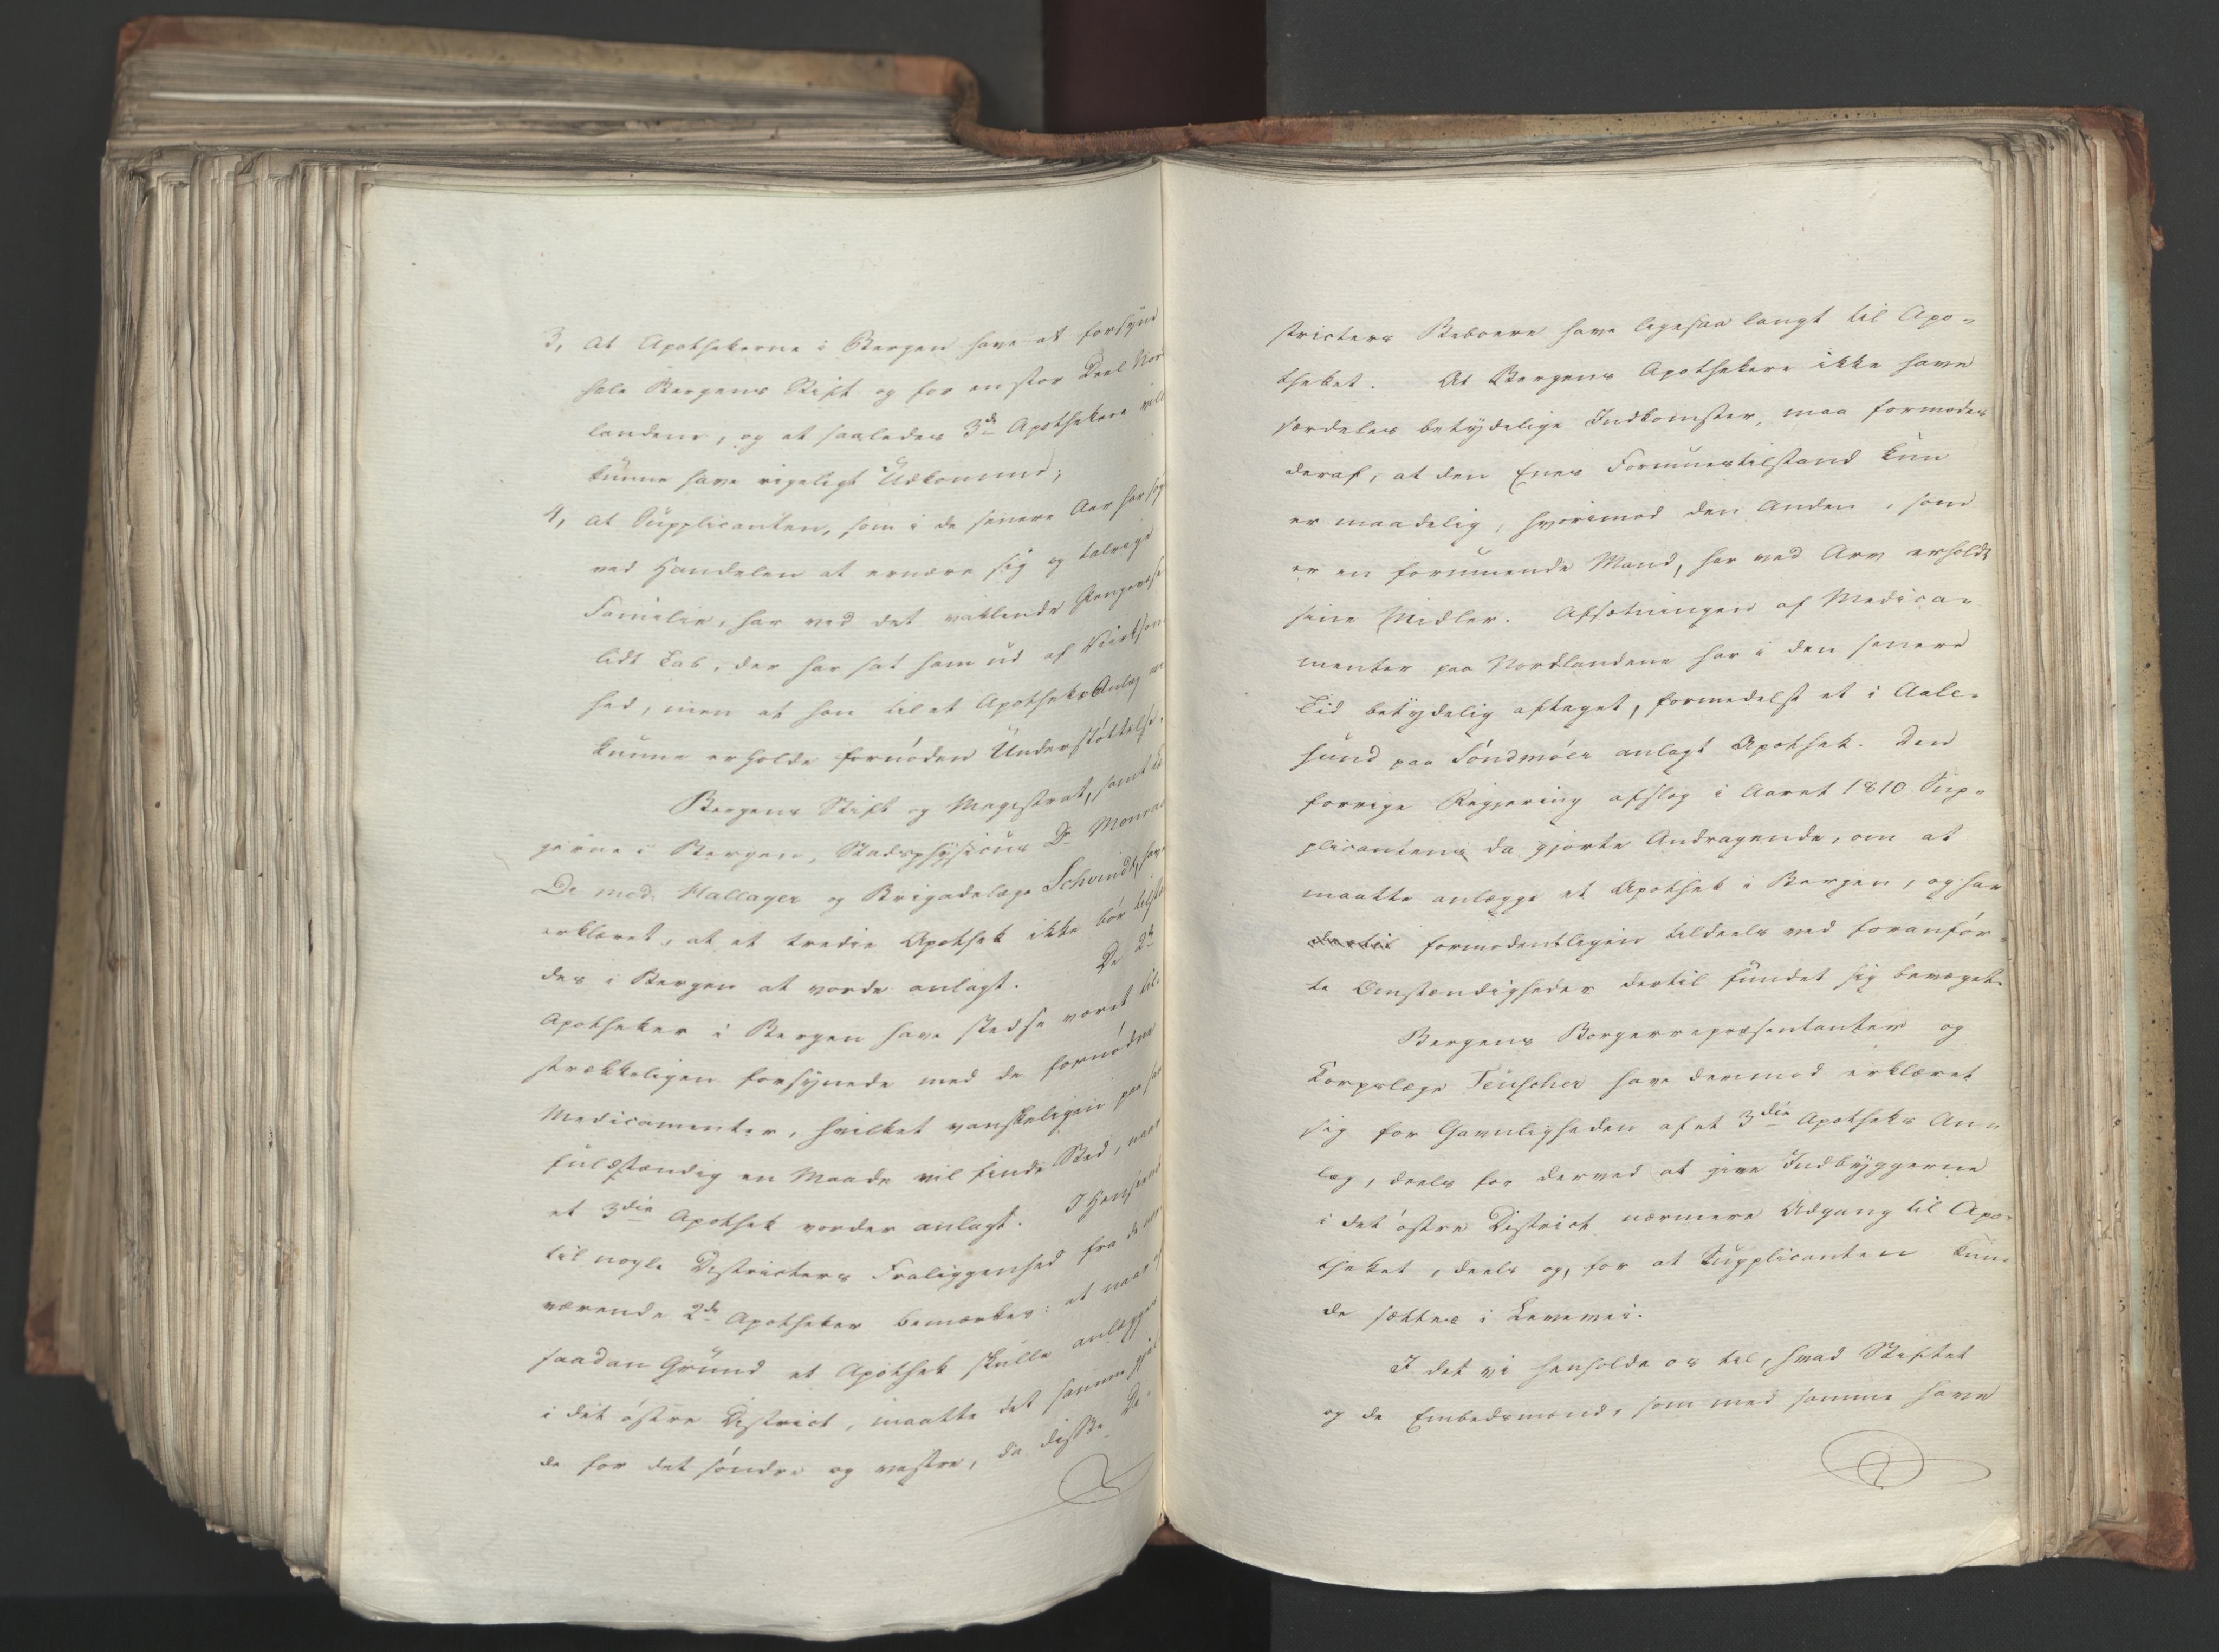 3, At Apothekerne i Bergen have at forsyne
hele Bergens Stift og for en stor Deel Nord
landene, og at saaledes 3de Apothekere vil
kunne have rigeligt Udkomme;
4, at Supplicanten, som i de senere Aar har søgt
ved Handelen at ernære sig og talrige
Familie, har ved det vaklende Pengevæsen
lidt Tab, der har sat ham ud af Virksom
hed, men at han til et Apotheks Anlæg
kunne erholde fornøden Understøttelse.
Bergens Stift og Magistrat, samt
gerne i Bergen, Stadsphysicus Dr Monrad
Dr med. Hallager og Brigadelæge Schvindt, have
erklæret, at et tredie Apothek ikke bør tilste
des i Bergen at vorde anlagt. De 2de
Apotheker i Bergen have stedse været til
strækkeligen forsynede med de fornødne
Medicamenter, hvilket vanskeligen paa saa
fuldstændig en Maade vil finde Sted, naar
et 3die Apothek vorder anlagt. I Henseende
til nogle Districters Fraliggenhed fra de nu
værende 2de Apotheker bemærkes: at naar af
saadan Grund et Apothek skulle anlægges
i det østre District, maatte det samme gjæl
de for det søndre og vestre, da disse Di
stricters Beboere have ligesaa langt til Apo-
theket. At Bergens Apothekere ikke have
særdeles betydelige Indkomster, maa formodes
deraf, at den Enes Formuestilstand kun
er maadelig, hvorimod den Anden, som
er en formuende Mand, har ved Arv erholdt
sine Midler. Afsætningen af Medica-
menter paa Nordlandene har i den senere
Tid betydelig aftaget, formedelst et i Aale-
sund paa Søndmøer anlagt Apothek. Den
forrige Regjering afslog i Aaret 1810 Sup-
plicantens da gjorte Andragende, om at
maatte anlægge et Apothek i Bergen, og har
dertil formodentligen tildeels ved foranfør-
te Omstændigheder dertil fundet sig bevæget.
Bergens Borgerrepræsentanter og
Korpslæge Teuscher have derimod erklæret
sig for Gavnligheden af et 3die Apotheks An-
læg, deels for derved at give Indbyggerne
i det østre District nærmere Adgang til Apo-
theket, deels og, for at Supplicanten kun-
de sættes i Levevei.
I det vi henholde os til, hvad Stiftet
og de Embedsmænd, som med samme have